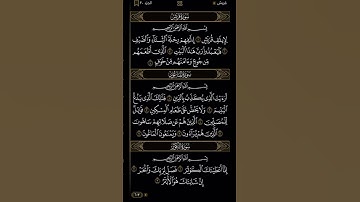 قريش
الجزء ٣٠
سورة قريش
بسم الله الرحمن الرحيم
لإيلف قريش ١ إلفهم رحلة الشتاء والصيف
٢ فليعبدوا رب هذا البيت ٣ الذي أطعمهم
من جوع وءامنهم من خوف ٤
سورة الماعون
بسم الله الرحمن الرحيم
أرءيت الذي يكذب بالدين ١ فذلك الذي يدع
اليتيم ٢ ولا يحض على طعام المسكين ٣ فويل
للمصلين ٤ الذين هم عن صلاتهم ساهون
٥ الذين هم يراءون ٦ ويمنعون الماعون ٧
سورة الكوثر
بسم الله الرحمن الرحيم
إنا أعطينك الكوثر ١ فصل لربك وانحر ٢
إن شانئك هو الأبتر ٣
٦٠٢